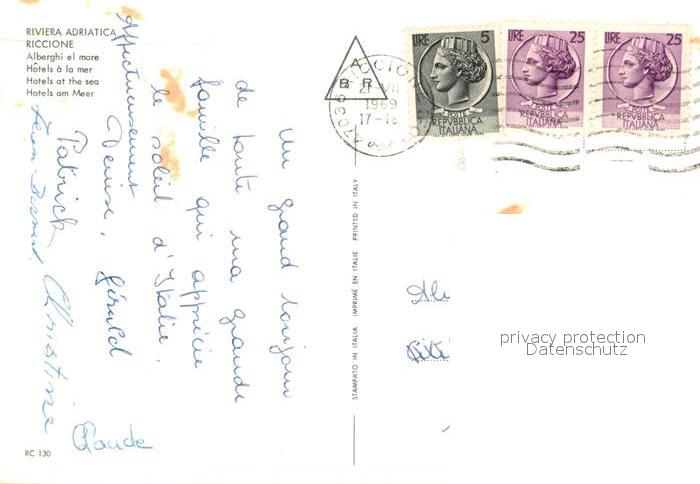 RIVIERA ADRIATICA
RICCIONE
Alberghi el mare
Hôtels à la mer
Hotels at the sea
Hotels am Meer
Un grand bonjour
de toute ma grande
famille qui apprécie
le soleil d'Italie.
Affectueusement
Denise, Gérald
Patrick
Christine
Claude
RC 130
STAMPATO IN ITALIA IMPRIMÉ EN ITALIE PRINTED IN ITALY
A
B R
1969
17-18
LIRE 5
POSTE
REPVBBLICA
ITALIANA
LIRE 25
POSTE
REPVBBLICA
ITALIANA
LIRE 25
POSTE
REPVBBLICA
ITALIANA
privacy protection
Datenschutz